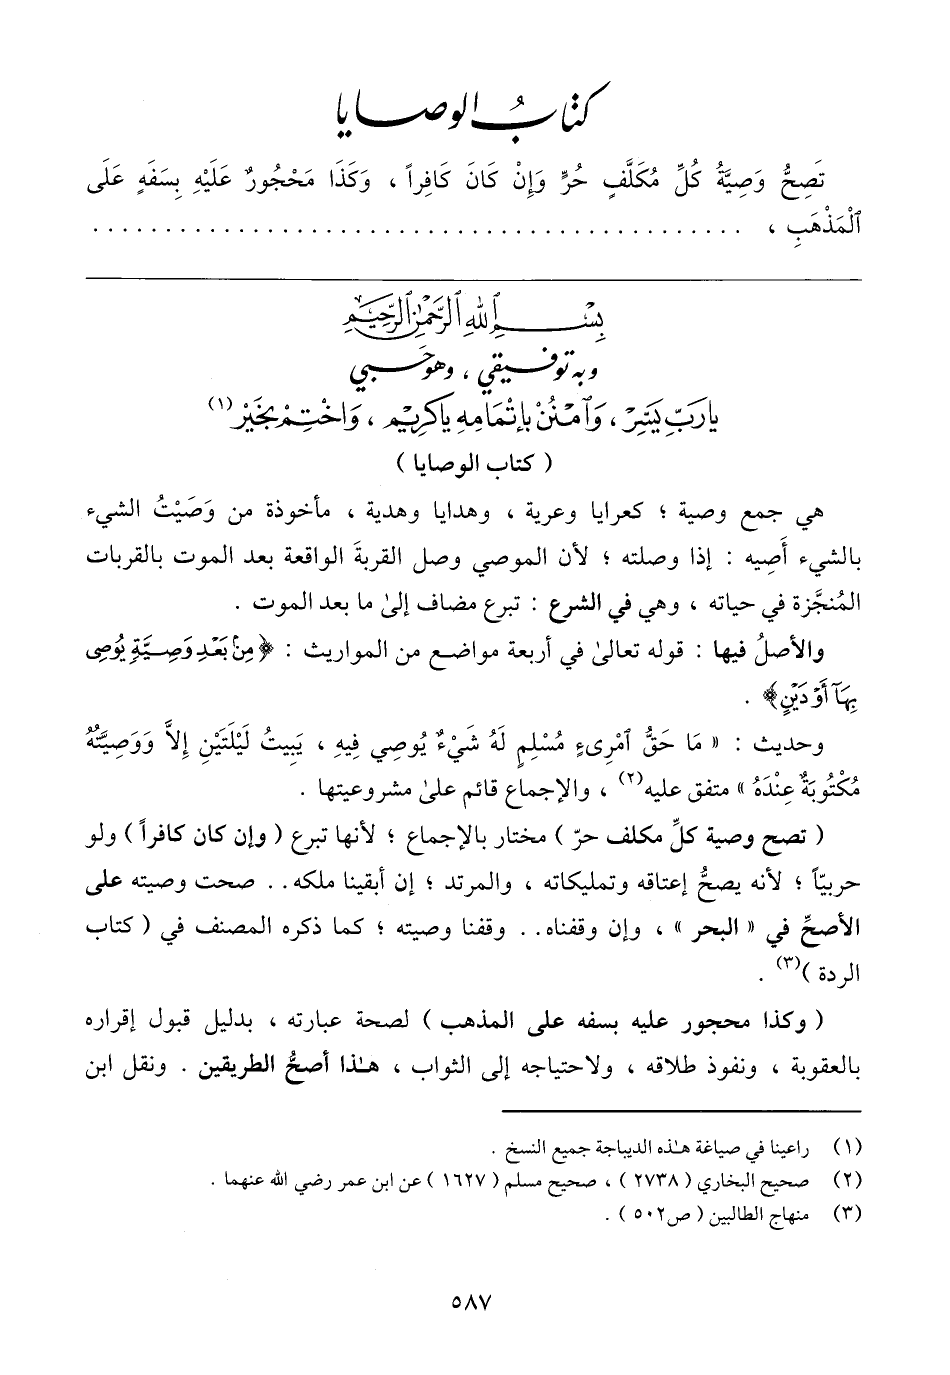 كتاب الوصايا
تَصِحُّ وَصِيَّةُ كُلِّ مُكَلَّفٍ حُرٍّ وَإِنْ كَانَ كَافِراً ، وَكَذَا مَحْجُورٌ عَلَيْهِ بِسَفَهٍ عَلَى
ٱلْمَذْهَبِ ، . . . . . . . . . . . . . . . . . . . . . . . . . . . . . . . . . . . . . . . . . . . .
بِسْمِ اللهِ الرَّحْمَنِ الرَّحِيمِ
وبه توفيقي ، وهو حَسبي
يا رَبِّ يَسِّرْ ، وَٱمْنُنْ بِإتْمَامِهِ يا كَرِيْم ، وَاخْتِمْ بِخَيْر(١)
( كتاب الوصايا )
هي جمع وصية ؛ كعرايا وعرية ، وهدايا وهدية ، مأخوذة من وَصَيْتُ الشيء
بالشيء أَصِيه : إذا وصلته ؛ لأن الموصي وصل القربةَ الواقعة بعد الموت بالقربات
المُنجَّزة في حياته ، وهي في الشرع : تبرع مضاف إلىٰ ما بعد الموت .
والأصلُ فيها : قوله تعالىٰ في أربعة مواضع من المواريث : ﴿مِنْ بَعْدِ وَصِيَّةٍ يُوصِى
بِهَآ أَوْ دَيْنٍ﴾ .
وحديث : « مَا حَقُّ ٱمْرِىءٍ مُسْلِمٍ لَهُ شَيْءٌ يُوصِي فِيهِ ، يَبِيتُ لَيْلَتَيْنِ إِلاَّ وَوَصِيَّتُهُ
مَكْتُوبَةٌ عِنْدَهُ » متفق عليه(٢) ، والإجماع قائم علىٰ مشروعيتها .
( تصح وصية كلِّ مكلف حرّ ) مختار بالإجماع ؛ لأنها تبرع ( وإن كان كافراً ) ولو
حربيّاً ؛ لأنه يصحُّ إعتاقه وتمليكاته ، والمرتد ؛ إن أبقينا ملكه . . صحت وصيته على
الأصحِّ في « البحر » ، وإن وقفناه . . وقفنا وصيته ؛ كما ذكره المصنف في ( كتاب
الردة )(٣) .
( وكذا محجور عليه بسفه على المذهب ) لصحة عبارته ، بدليل قبول إقراره
بالعقوبة ، ونفوذ طلاقه ، ولاحتياجه إلى الثواب ، هٰذا أصحُّ الطريقين . ونقل ابن
(١) راعينا في صياغة هٰذه الديباجة جميع النسخ .
(٢) صحيح البخاري ( ٢٧٣٨ ) ، صحيح مسلم ( ١٦٢٧ ) عن ابن عمر رضي الله عنهما .
(٣) منهاج الطالبين ( ص٥٠٢ ) .
٥٨٧